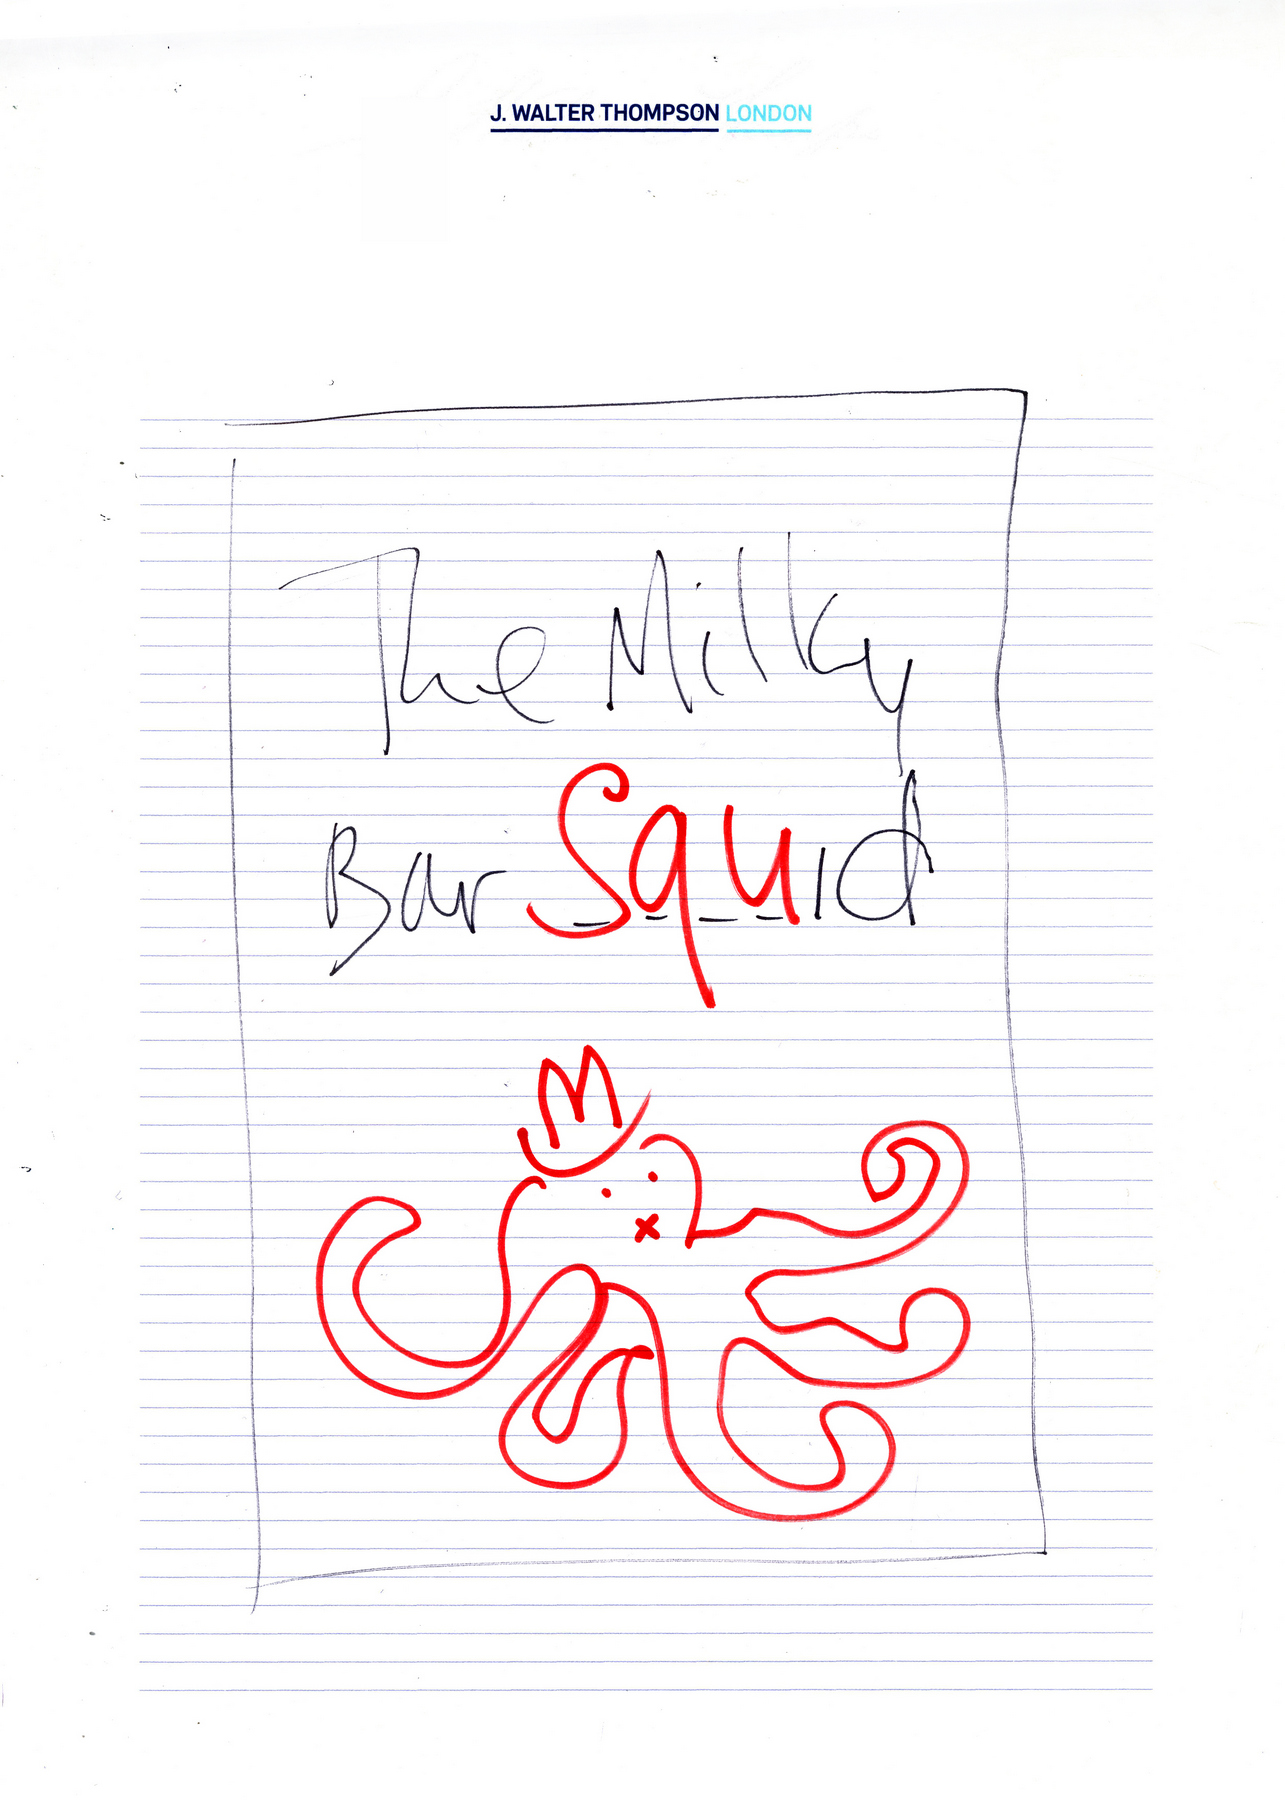 J. WALTER THOMPSON LONDON
The Milky
Bar Squid